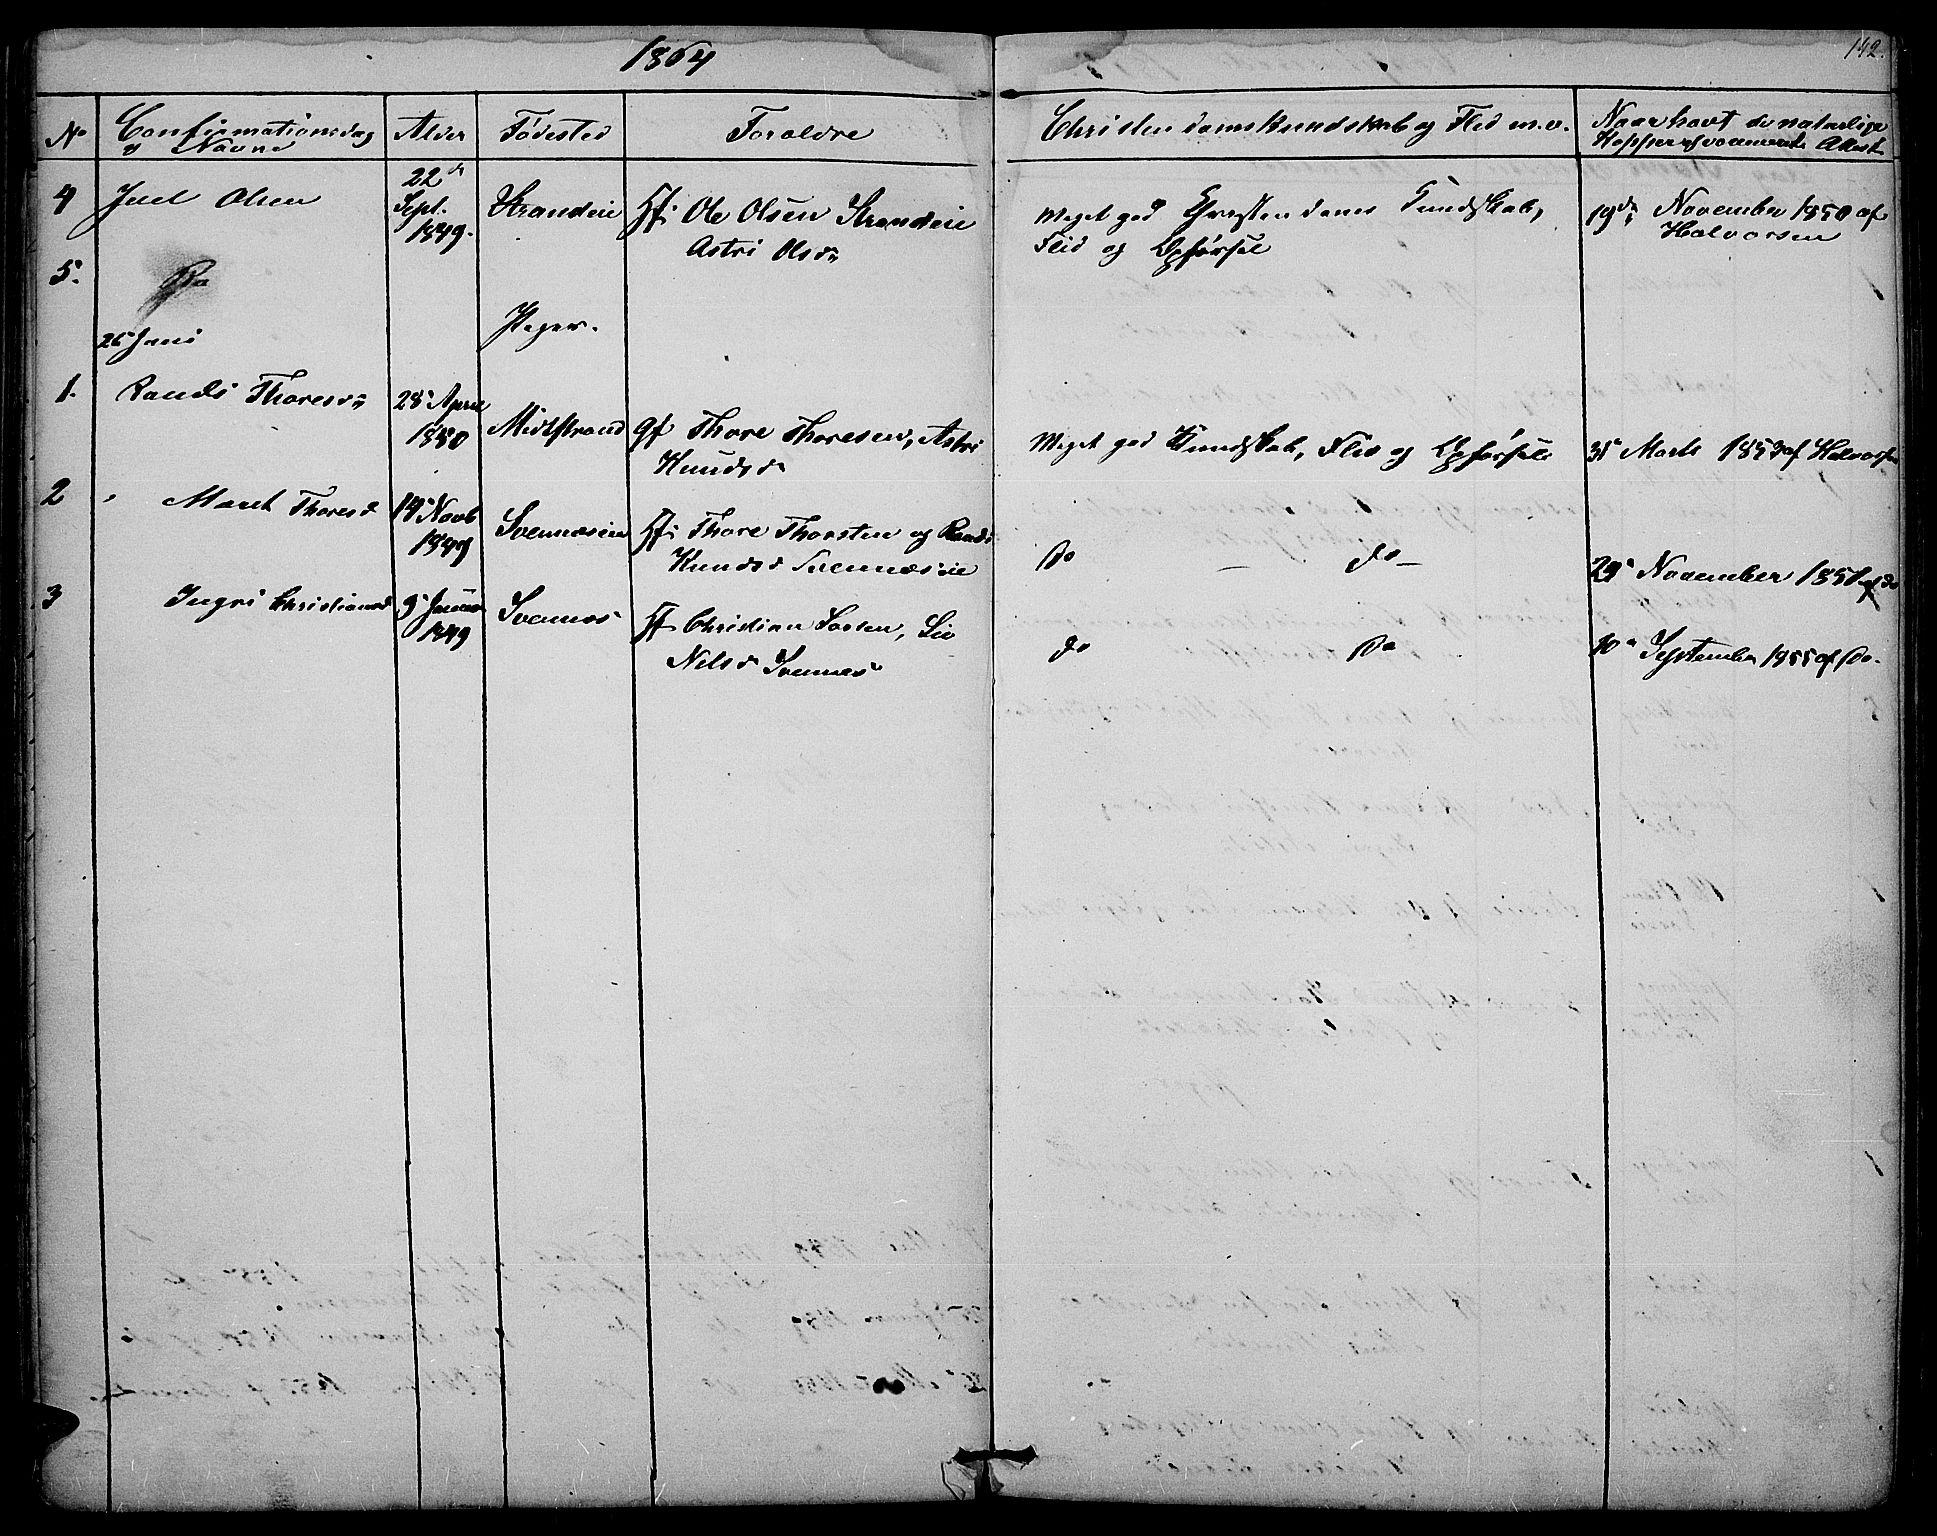 1864
142.
No Confirmationsdag og Navne Alder Fødested Forældre Christendomskundskab og Flid m.v. Naar havt de naturlige Kopper ell vaccineret Attest
4 Juel Olsen 22de Sept. 1849. Strandeie Hf: Ole Olsen Strandeie
Astri Olsdr
Meget god Christendoms Kundskab, Flid og Opførsel
19de November 1850 af Halvorsen
5. Do
26 Juni Piger.
1. Randi Thoresdr 28 April 1850 Midtstrand Gf Thore Thoresen, Astri
Knudsd
Meget god Kundskab, Flid og Opførsel 31 Marts 1853 af Halvorsen
2 Marit Thoresd 14 Novb 1849 Svennæseie Hf: Thore Thorsten og Randi
Knudsd Svennæseie
Do — do — 29 November 1851 af do
3 Ingri Christiansd 9 Januar 1849 Svennes Hf Christian Larsen, Siv
Nelsd Svennes
do Do 10de September 1855 af Do.